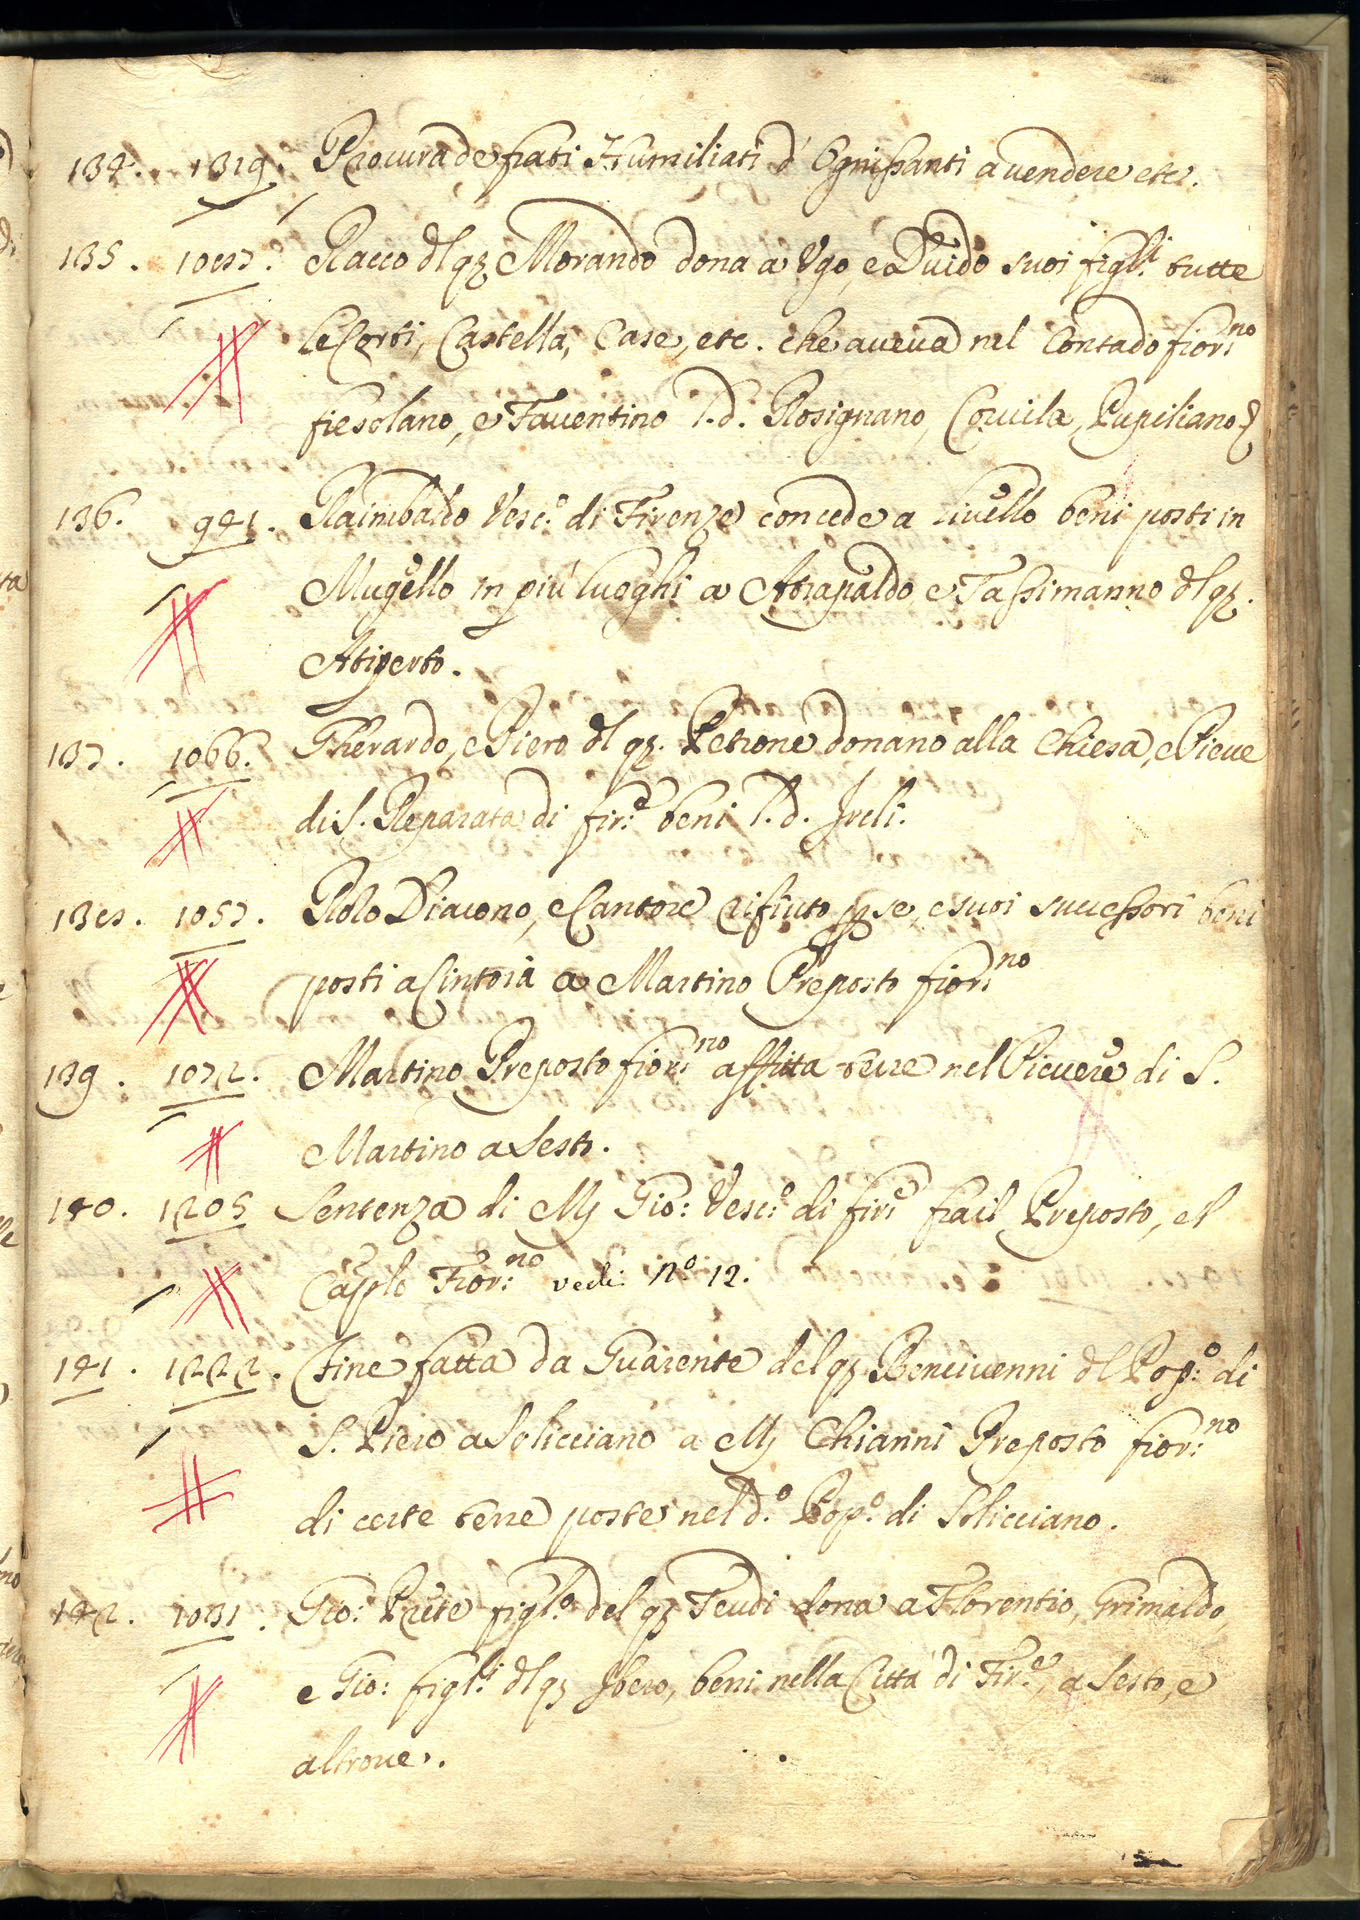 134. 1319. Procura de frati Humiliati d'Ognissanti a vendere etc.
135. 1087. Racco dl qz Morando dona a Ugo, e Guido suoi figl.i tutte
le Corti, Castella, Case, etc. che aveva nel Contado fior.no
fiesolano, e Faventino l.d. Rosignano, Pupiliano
136. 941. Raimbaldo Vesc.o di Firenze concede a livello beni posti in
Mugello in più luoghi a Atrapaldo e Tassimanno dl qz.
Atiperto.
137. 1066. Gherardo, e Piero dl qz. Petrone donano alla Chiesa, e Pieve
di S. Reparata di fir.e beni l.d.
138. 1057. Rolo Diacono, e Cantore rifiuto p se, e suoi successori beni
posti a Cintoia a Martino Preposto fior.no
139. 1072. Martino Preposto fior.no affitta terre nel Piviere di S.
Martino a Sesto.
140. 1205 Sentenza di Mr Gio: Vesc.o di fir.e fra il Preposto, el
Caplo Fior:no vedi n.o 12.
141. 1222. Fine fatta da Guarente del qz Bencivenni dl Pop.o di
S. Piero a Solicciano a Mr Chianni Preposto fior:no
di certe terre poste nel d.o Pop.o di Solicciano.
142. 1031. Gio: Prete figl.o del qz Teudi dona a Florentio, Grimaldo,
e Gio: figl.i dl qz Ibero, beni nella Città di Fir.e, a Sesto, e
altrove.